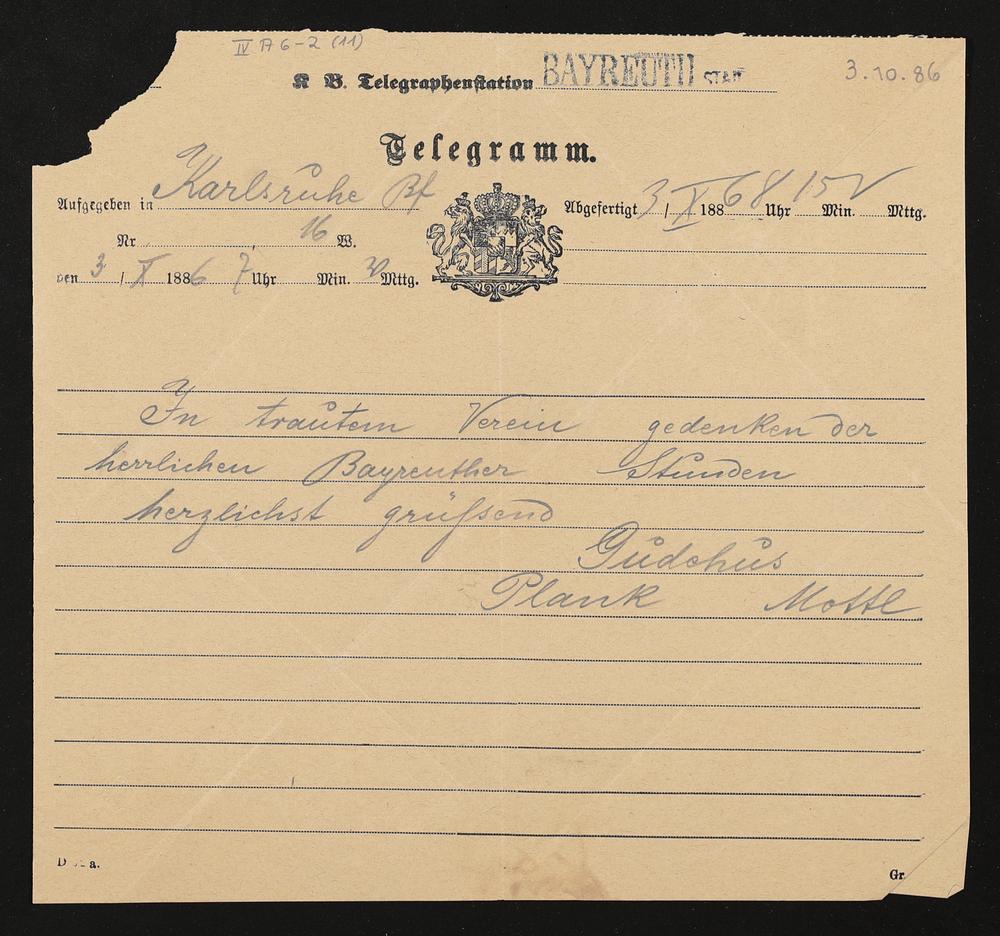 IV A 6-2 (11)
K B. Telegraphenstation BAYREUTH STADT
3.10.86
Telegramm.
Aufgegeben in Karlsruhe Bf
Abgefertigt 3 / X 1886 8 Uhr 15 Min. V Mttg.
Nr 16 W.
den 3 / X 1886 7 Uhr Min. Mttg.
In trautem Verein gedenken der
herrlichen Bayreuther Stunden
herzlichst grüßend
Gudehus
Plank Mottl
Gr